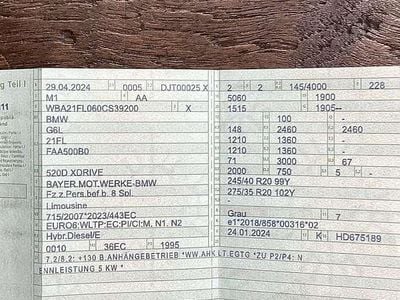 g Teil I
29.04.2024 0005 DJT00025 X 2 2 145/4000 228
M1 AA 5060 1900
WBA21FL060CS39200 X 1515 1905--
BMW - 100 -
G6L 148 2460 2460
21FL 1210 1360 -
FAA500B0 1210 1360 -
71 3000 67
520D XDRIVE 2000 750 5 -
BAYER.MOT.WERKE-BMW 245/40 R20 99Y
Fz.z.Pers.bef.b. 8 Spl. 275/35 R20 102Y
Limousine -
715/2007*2023/443EC Grau 7
EURO6;WLTP;EC;PI/CI:M, N1, N2 e1*2018/858*00316*02
Hybr.Diesel/E 24.01.2024 K HD675189
0010 36EC 1995
7.2/8.2: +130 B.ANHÄNGEBETRIEB *WW.AHK LT.EGTO *ZU P2/P4: N
ENNLEISTUNG 5 KW *